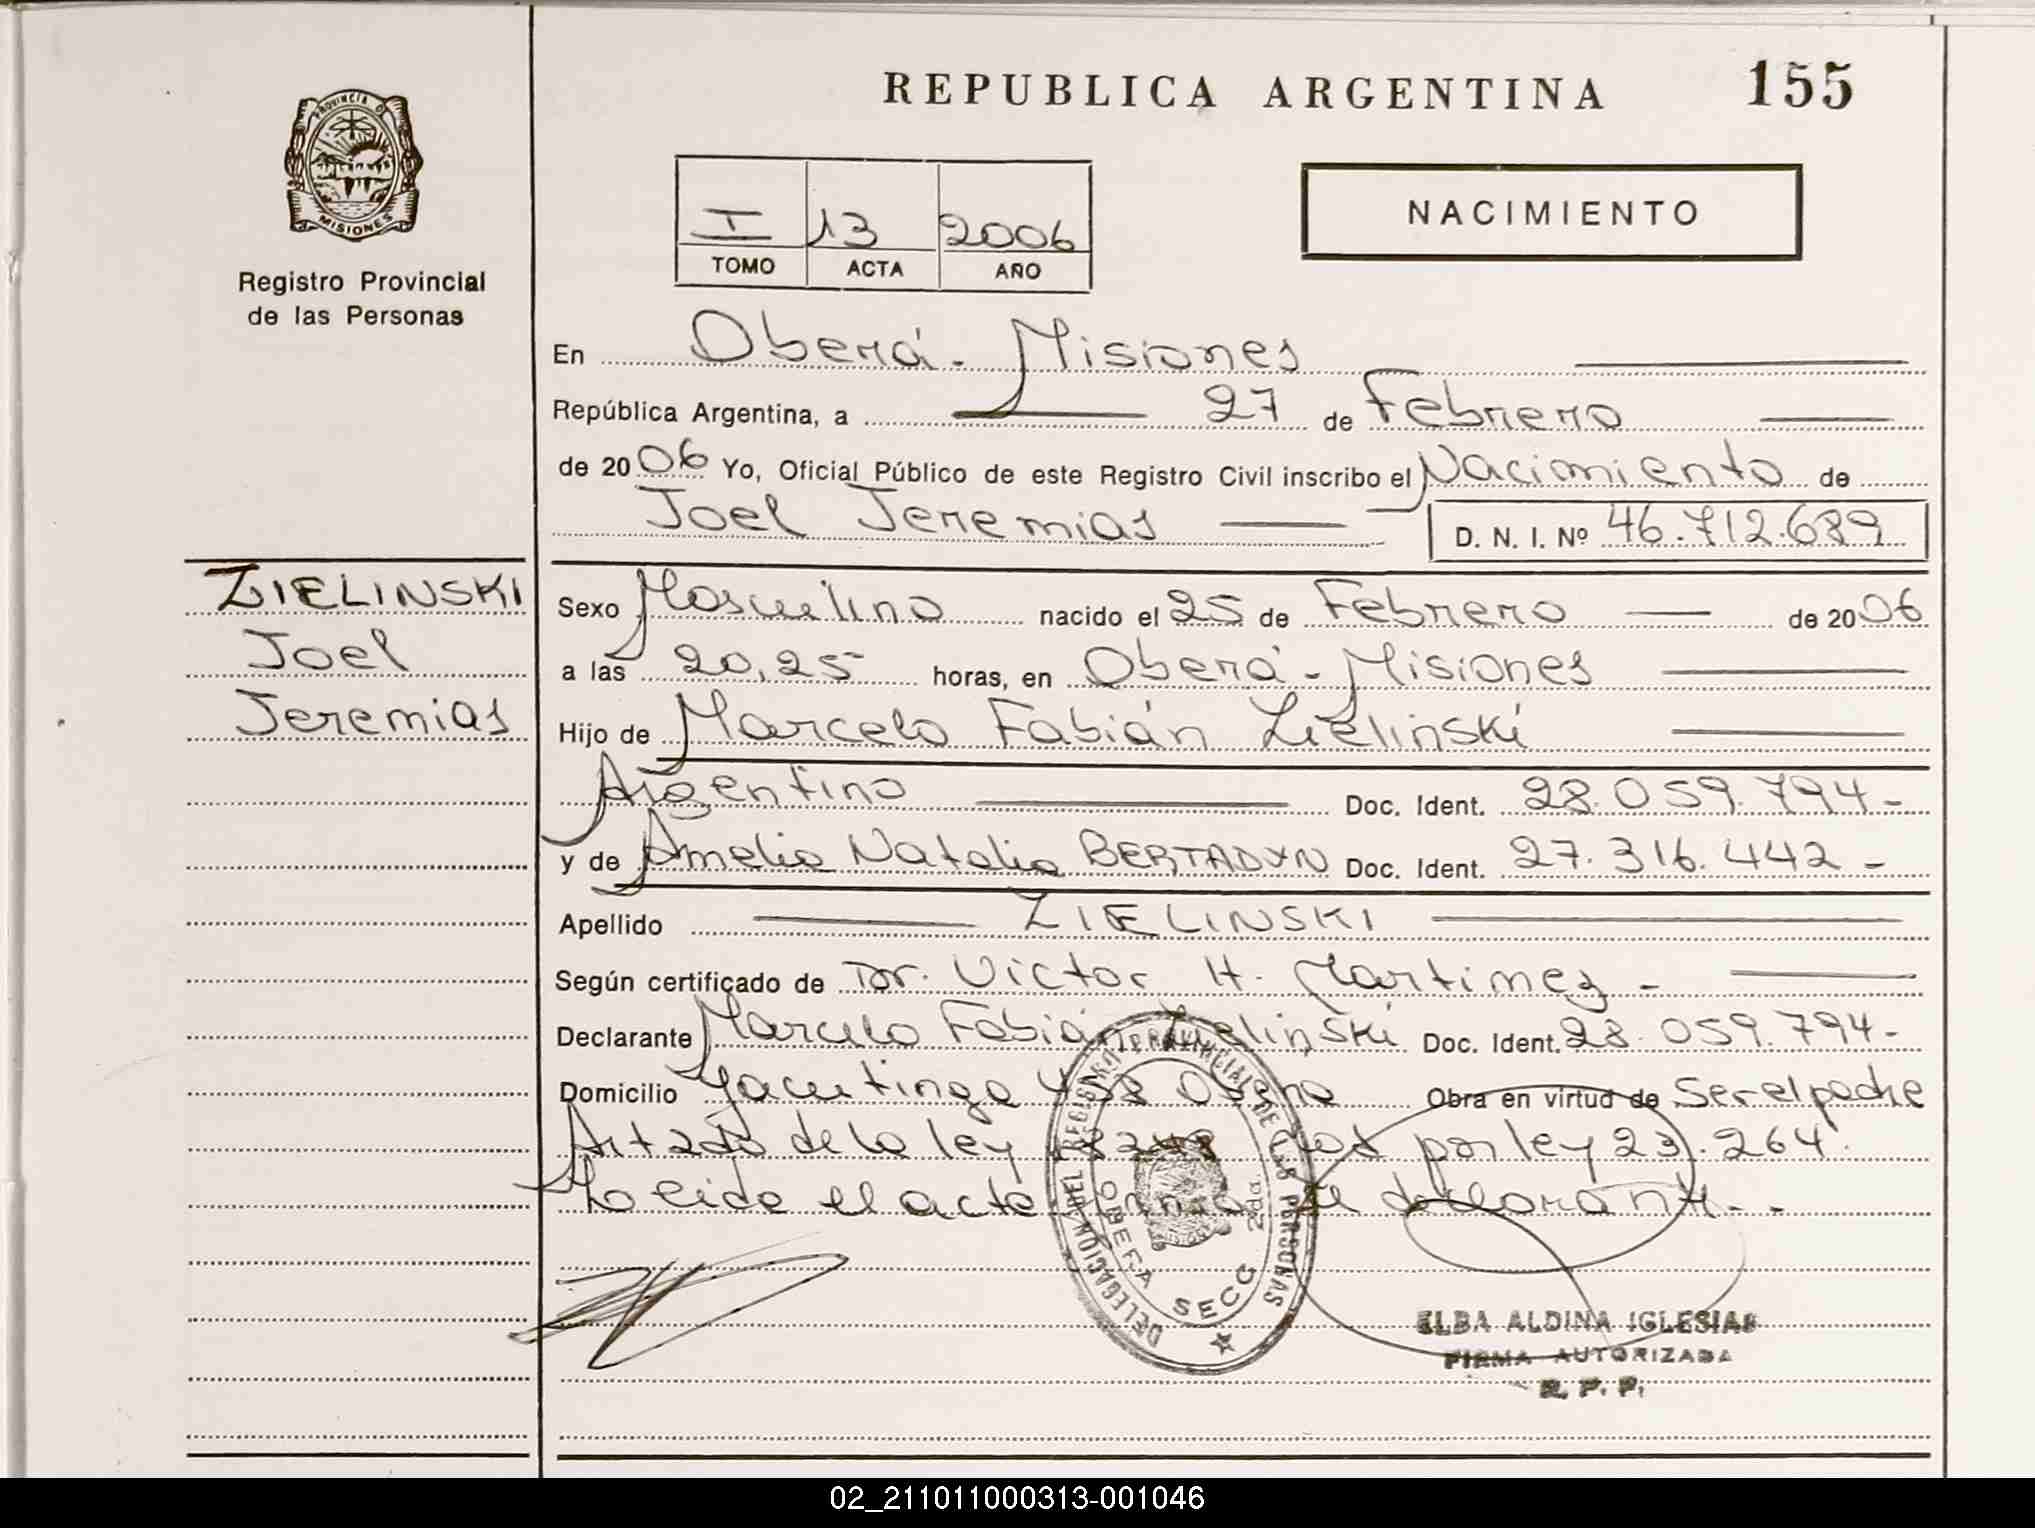 REPUBLICA ARGENTINA 155
PROVINCIA DE MISIONES
Registro Provincial
de las Personas
I 13 2006
TOMO ACTA AÑO
NACIMIENTO
En Oberá - Misiones
República Argentina, a 27 de Febrero
de 2006 Yo, Oficial Público de este Registro Civil inscribo el Nacimiento de
Joel Jeremias D. N. I. Nº 46.712.689
ZIELINSKI
Joel
Jeremias
Sexo Masculino nacido el 25 de Febrero de 2006
a las 20,25 horas, en Oberá - Misiones
Hijo de Marcelo Fabián Zielinski
Argentino Doc. Ident. 28.059.794-
y de Amelia Natalia Doc. Ident. 27.316.442-
Apellido ZIELINSKI
Según certificado de Dr. Victor H. Martinez -
Declarante Marcelo Fabián Zielinski Doc. Ident. 28.059.794-
Domicilio Yacutinga Obra en virtud de Ser el padre
de la ley por ley 23.264.
el acta el declarante.-
DELEGACION DEL REGISTRO PROVINCIAL DE LAS PERSONAS
OBERA SECC 2da.
ELBA ALDINA IGLESIAS
FIRMA AUTORIZADA
R. P. P.
02_211011000313-001046